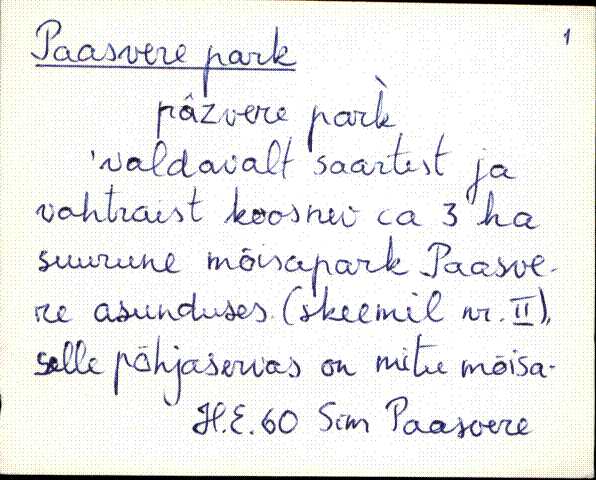 Paasvere park
1
pâzvere park̀
'valdavalt saartest ja
vahtraist koosnev ca 3 ha
suurune mõisapark Paasve-
re asunduses (skeemil nr. II),
selle põhjaservas on mitu mõisa-
H.E.60 Sim Paasvere